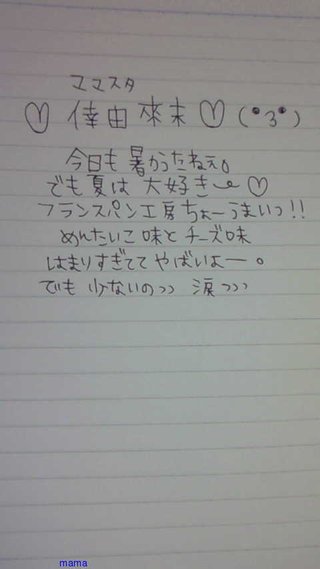 ママスタ
♡ 倖田來未 ♡ (•3•)
今日も暑かったねぇ。
でも夏は大好き〜♡
フランスパン工房ちょーうまいっ!!
めんたいこ味とチーズ味
はまりすぎててやばいよー。
でも少ないのっっ 涙っっっ
mama